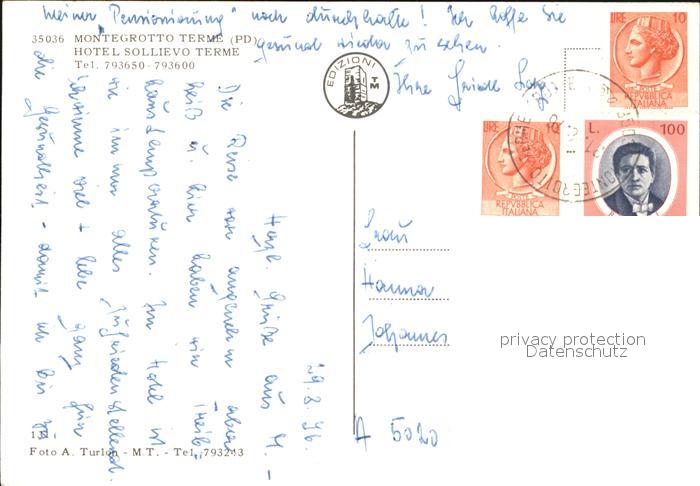 meiner "Pensionierung" noch durchhalte! Ich hoffe Sie
gesund wieder zu sehen.
Ihre
35036 MONTEGROTTO TERME (PD)
HOTEL SOLLIEVO TERME
Tel. 793650 - 793600
EDIZIONI
TM
LIRE 10
POSTE
REPVBBLICA
ITALIANA
LIRE 10
POSTE
REPVBBLICA
ITALIANA
L. 100
MONTEGROTTO TERME
29.8.76.
Herzl. Grüße aus M. -
Die Reise war angenehm aber
heiß u. hier haben wir
Im Hotel ist
wie immer alles zufriedenstellend.
viel + lebe ganz für
die Gesundheit - damit ich bis zu
Frau
Hanna
Johannes
A 5020
privacy protection
Datenschutz
Foto A. Turlon - M.T. - Tel. 793243